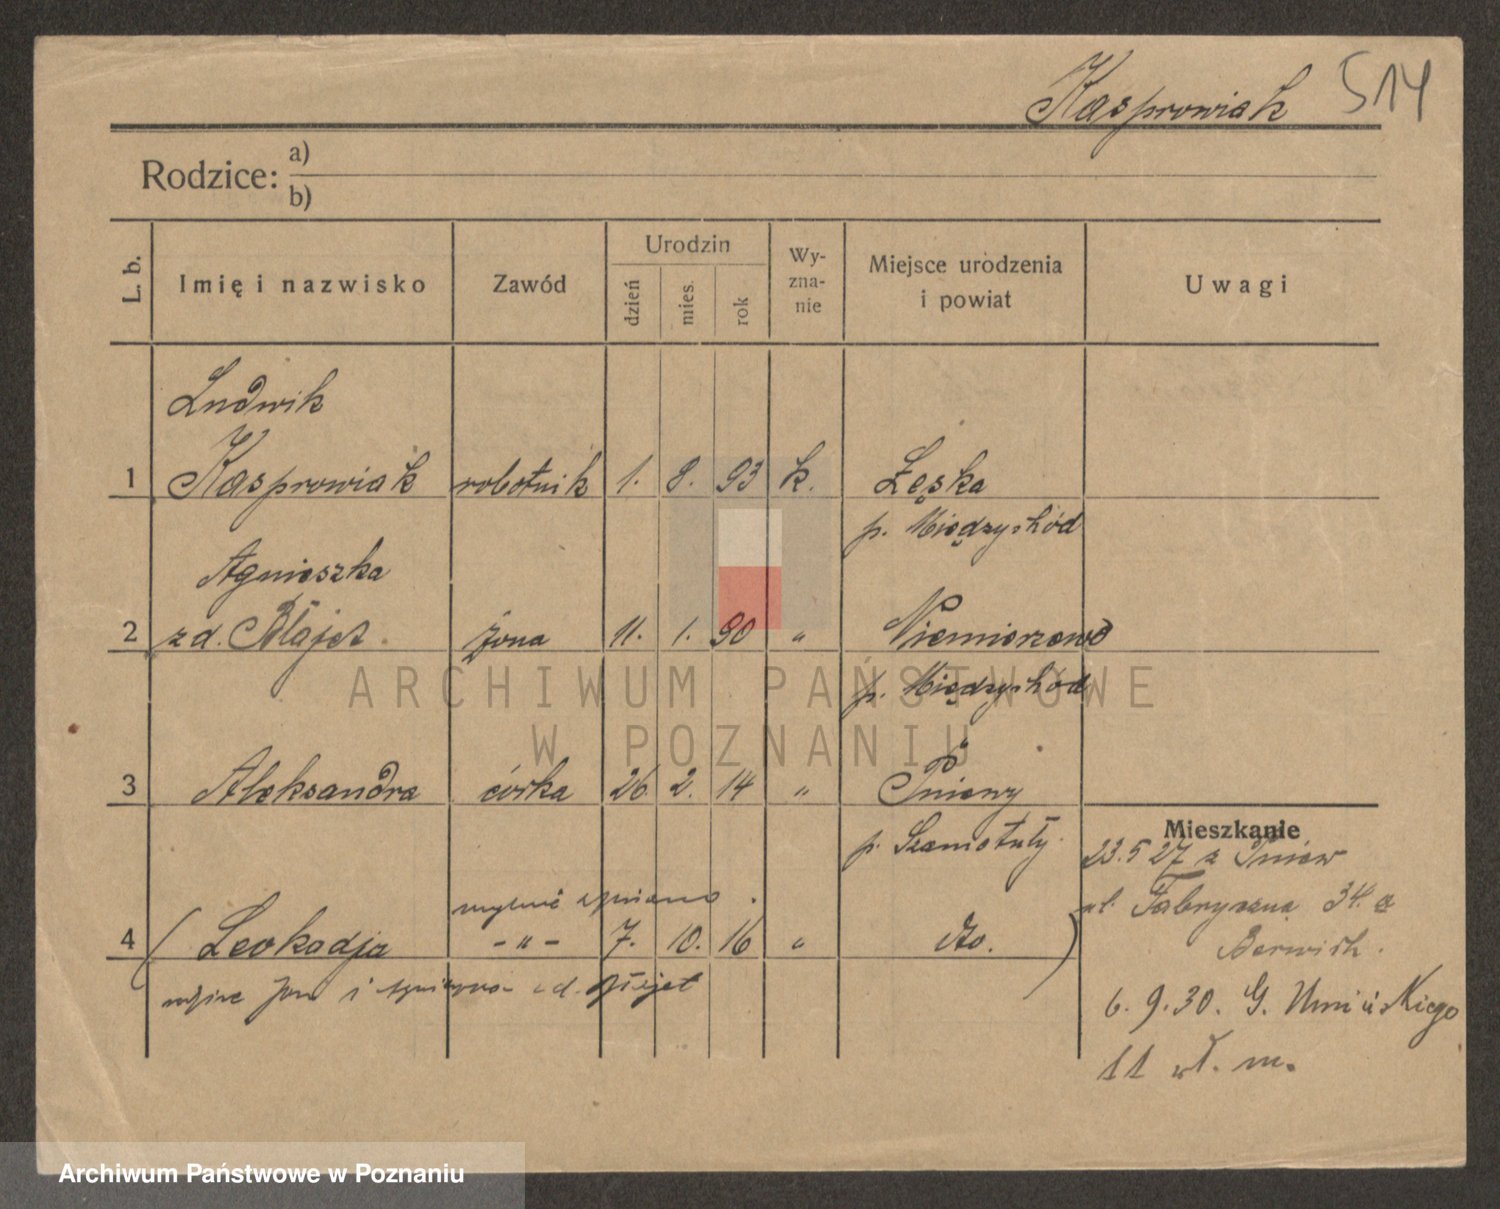 Kasprowiak 514
Rodzice: a)
b)
L. b.
Imię i nazwisko
Zawód
Urodzin
dzień
mies.
rok
Wy-
zna-
nie
Miejsce urodzenia
i powiat
Uwagi
Ludwik
1 Kasprowiak robotnik 1. 8. 93 k. Łęska
p. Międzychód
Agnieszka
2 z d. Błajet. żona 11. 1. 90 " Niemierzewo
p. Międzychód
3 Aleksandra córka 26 2. 14 " Pniewy
p. Szamotuły
Mieszkanie
23.5 27 z Pniew
ul. Fabryczna 34 a
4 ( Leokadja - " - 7. 10. 16 " dto. )
6. 9. 30. G. Umińskiego
11 wł. m.
ARCHIWUM PAŃSTWOWE
W POZNANIU
Archiwum Państwowe w Poznaniu